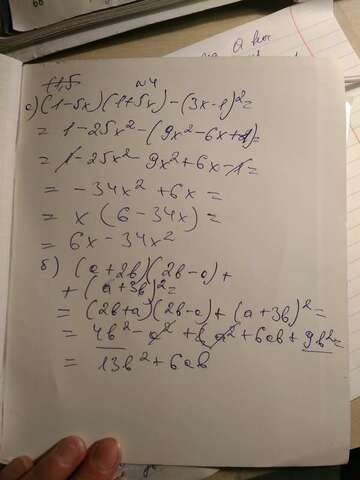 №4
а) (1-5x)(1+5x)-(3x-1)²=
= 1-25x²-(9x²-6x+1)=
= 1-25x²-9x²+6x-1=
= -34x²+6x=
= x(6-34x)=
= 6x-34x²
б) (a+2b)(2b-a)+
+(a+3b)²=
= (2b+a)(2b-a)+(a+3b)²=
= 4b²-a²+a²+6ab+9b²=
= 13b²+6ab